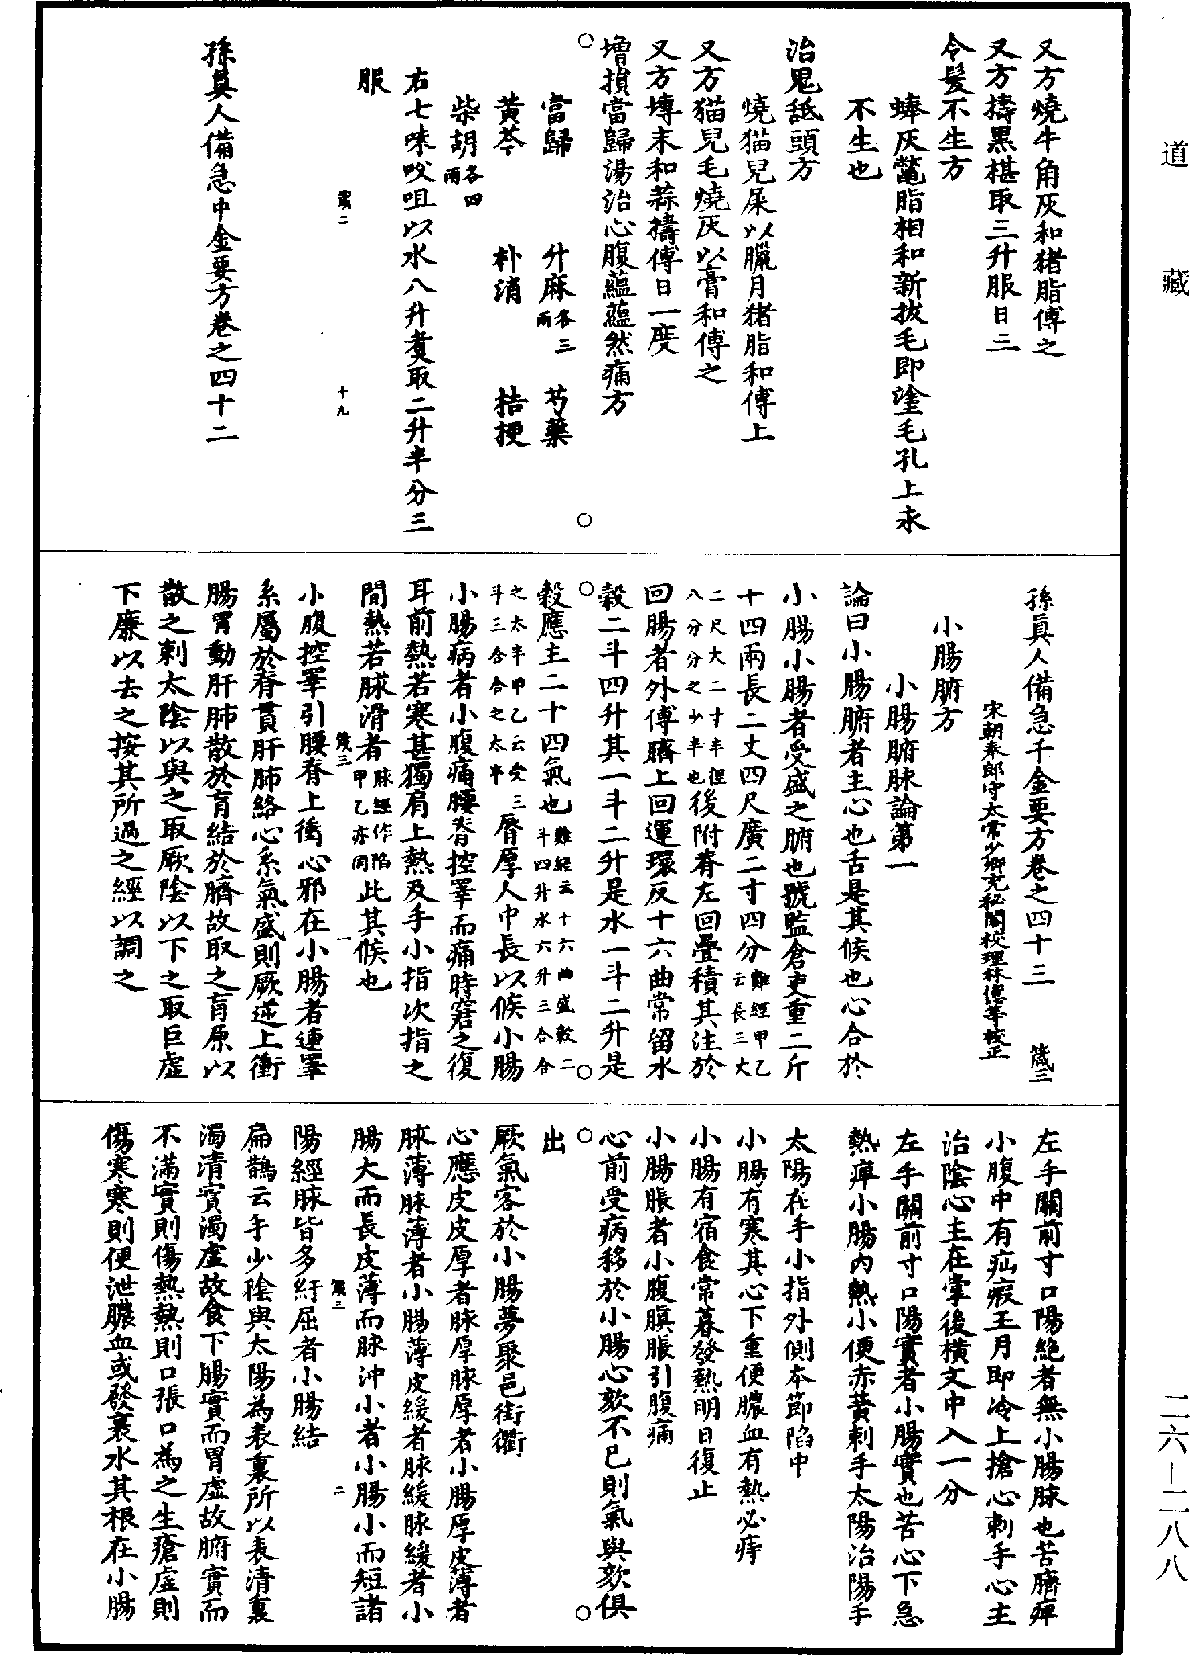 道藏
又方燒牛角灰和猪脂傅之
又方擣黑椹取三升服日三
令髮不生方
蜯灰鼈脂相和新拔毛即塗毛孔上永
不生也
治鬼舐頭方
燒猫兒屎以臘月猪脂和傅上
又方猫兒毛燒灰以膏和傅之
又方塼末和蒜擣傅日一度
增損當歸湯治心腹蘊蘊然痛方
當歸 升麻各三兩 芍藥
黃芩 朴消 桔梗
柴胡各四兩
右七味㕮咀以水八升煑取二升半分三
十九
服
孫真人備急千金要方卷之四十二
孫真人備急千金要方卷之四十三
宋朝奉郎守太常少卿充秘閣校理林億等校正
小腸腑方
小腸腑脉論第一
論曰小腸腑者主心也舌是其候也心合於
小腸小腸者受盛之腑也號監倉吏重二斤
十四兩長二丈四尺廣二寸四分難經甲乙云長三丈
二尺大二寸半徑八分分之少半也後附脊左回疊積其注於
回腸者外傅臍上回運環反十六曲常留水
穀二斗四升其一斗二升是水一斗二升是
穀應主二十四氣也難經云十六曲盛穀二斗四升水六升三合合
之太半甲乙云受三斗三合合之太半脣厚人中長以候小腸
小腸病者小腹痛腰脊控睪而痛時窘之復
耳前熱若寒甚獨肩上熱及手小指次指之
間熱若脉滑者脉經作陷甲乙亦同此其候也
一
小腹控睪引腰脊上衝心邪在小腸者連睪
系屬於脊貫肝肺絡心系氣盛則厥逆上衝
腸胃動肝肺散於肓結於臍故取之肓原以
散之刺太陰以與之取厥陰以下之取巨虛
下廉以去之按其所過之經以調之
左手關前寸口陽絕者無小腸脉也苦臍痹
小腹中有疝瘕王月即冷上搶心刺手心主
治陰心主在掌後橫文中入一分
左手關前寸口陽實者小腸實也苦心下急
熱痹小腸內熱小便赤黃刺手太陽治陽手
太陽在手小指外側本節陷中
小腸有寒其心下重便膿血有熱必痔
小腸有宿食常暮發熱明日復止
小腸脹者小腹䐜脹引腹痛
心前受病移於小腸心欬不已則氣與欬俱
出
厥氣客於小腸夢聚邑街衢
心應皮皮厚者脉厚脉厚者小腸厚皮薄者
脉薄脉薄者小腸薄皮緩者脉緩脉緩者小
腸大而長皮薄而脉沖小者小腸小而短諸
二
陽經脉皆多紆屈者小腸結
扁鵲云手少陰與太陽為表裏所以表清裏
濁清實濁虛故食下腸實而胃虛故腑實而
不滿實則傷熱熱則口張口為之生瘡虛則
傷寒寒則便泄膿血或發裏水其根在小腸
二六—二八八